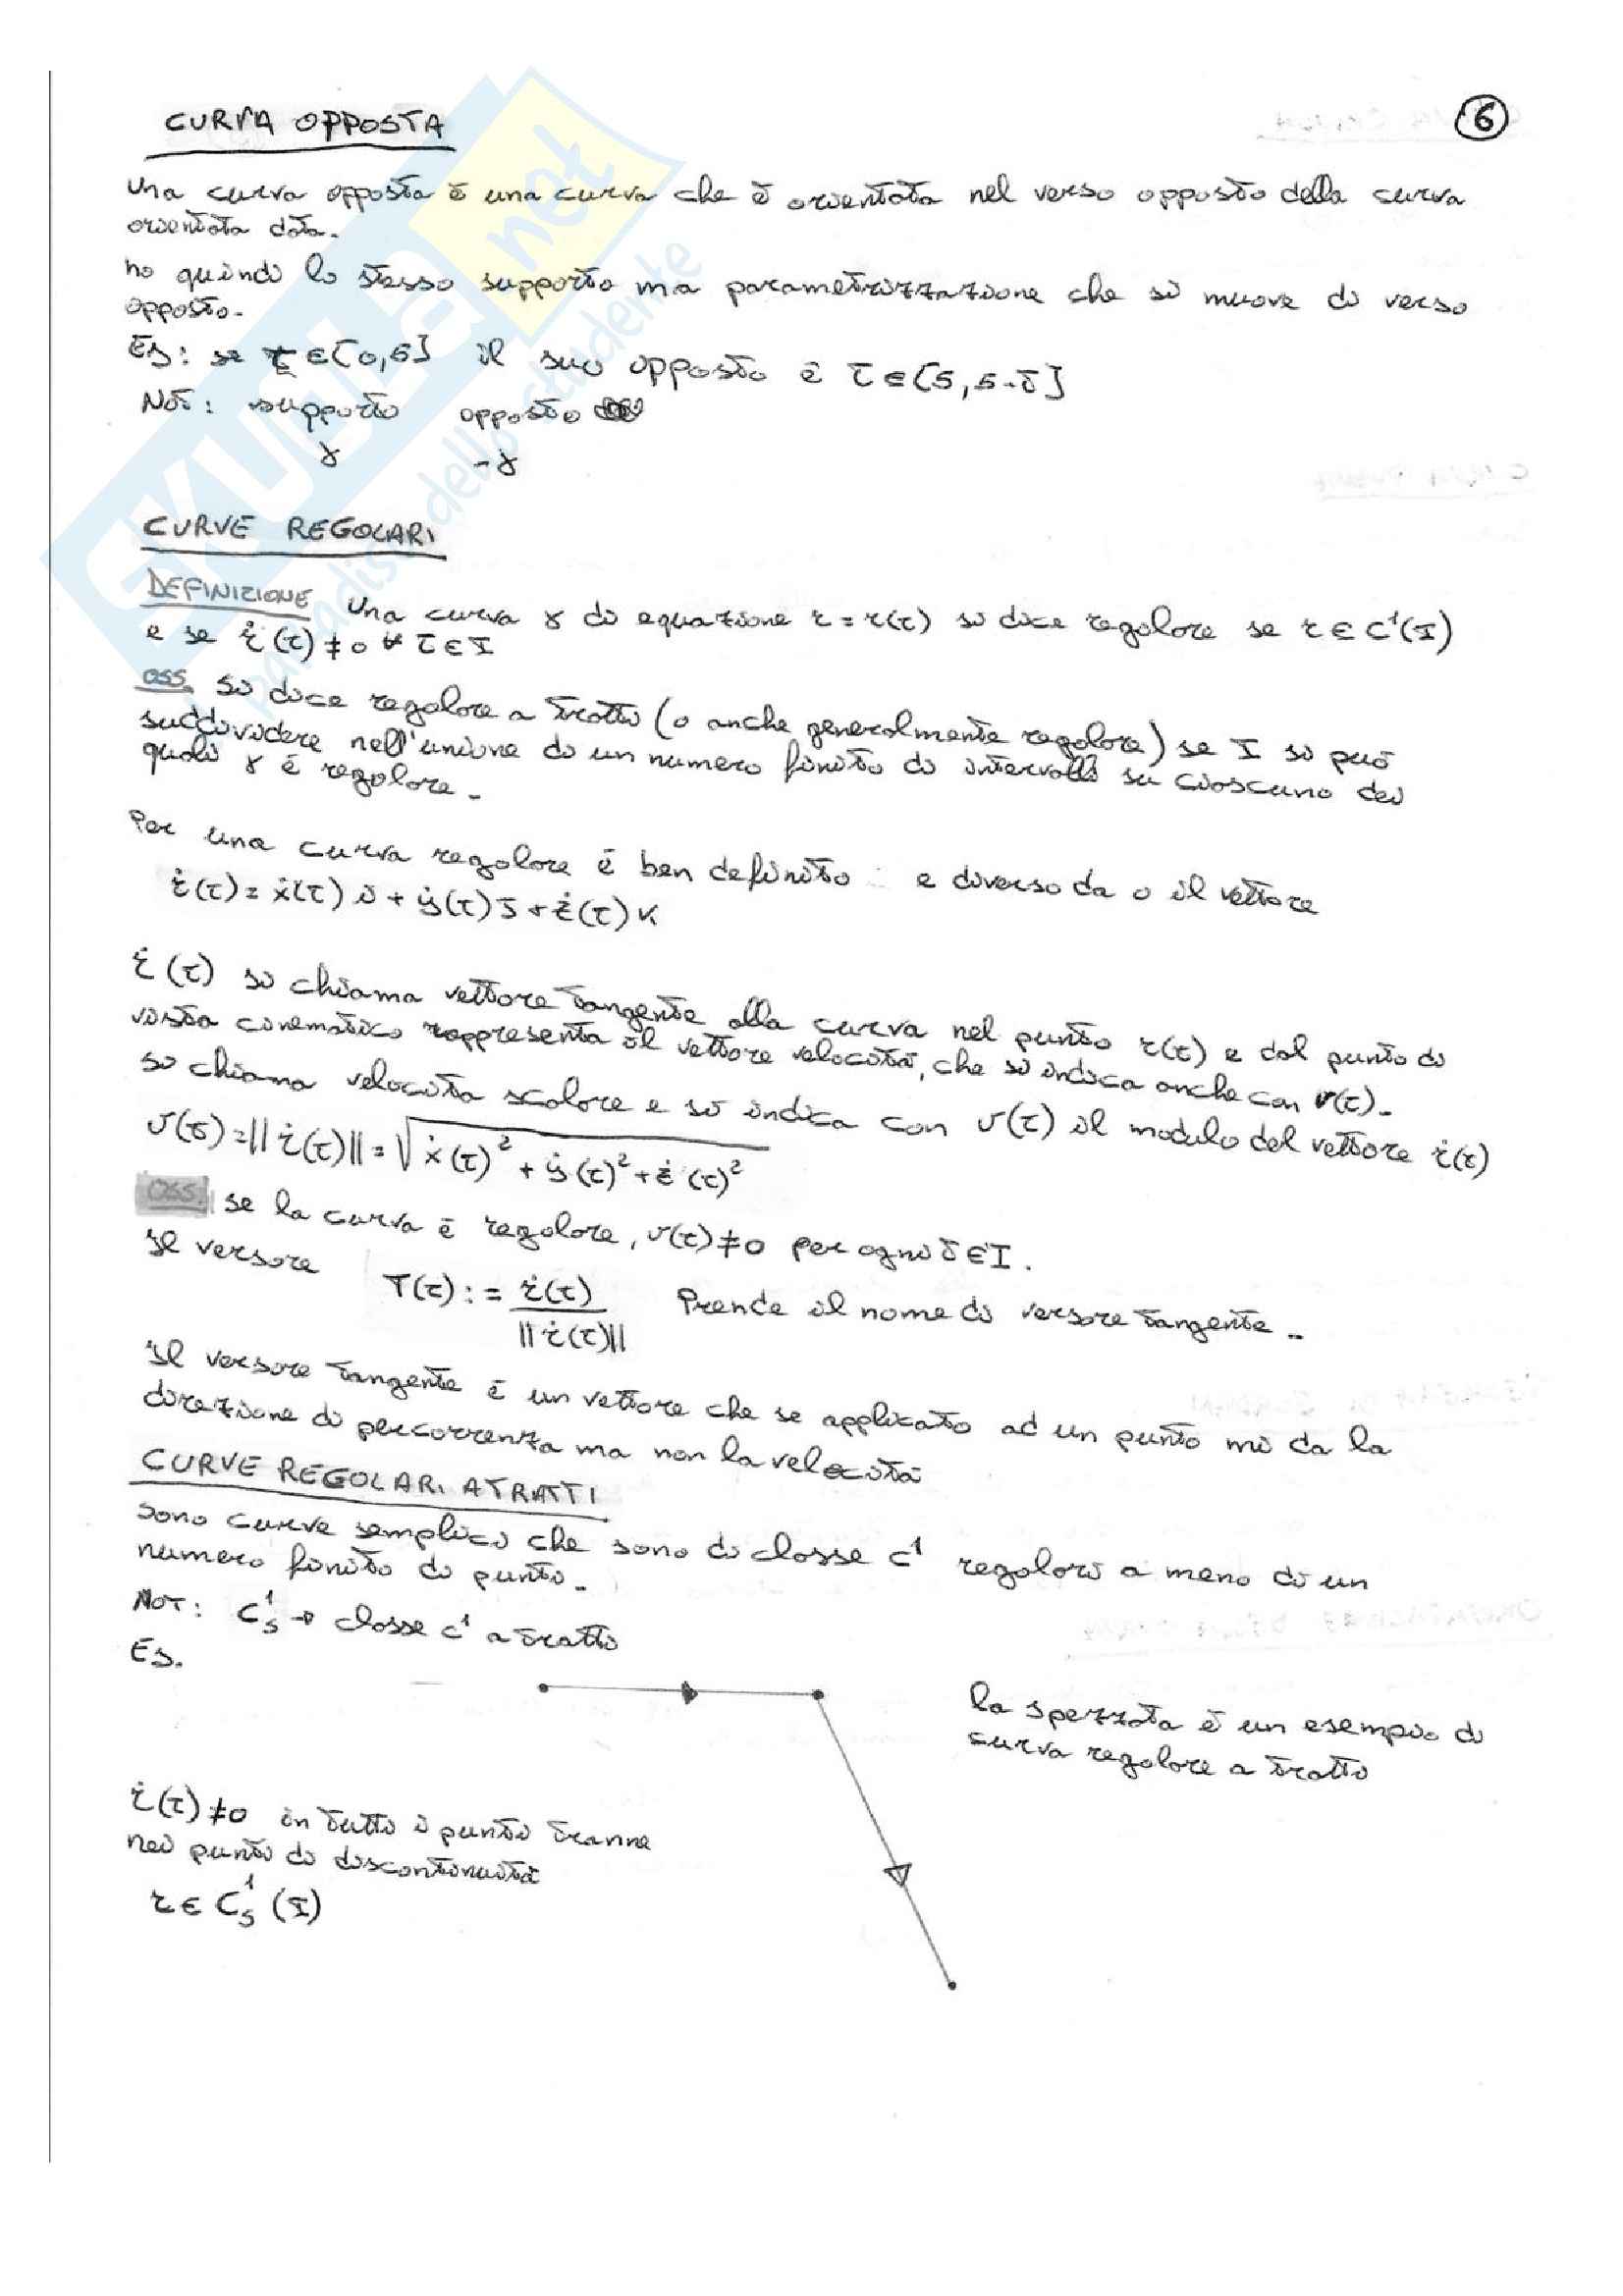 CURVA OPPOSTA
6
Una curva opposta è una curva che è orientata nel verso opposto della curva
orientata data.
ho quindi lo stesso supporto ma parametrizzazione che si muove di verso
opposto.
Es: se t∈[0,5] il suo opposto è t∈[5,5-t]
Not: supporto opposto
γ -γ
CURVE REGOLARI
DEFINIZIONE Una curva γ di equazione r=r(t) si dice regolare se r∈C¹(I)
e se ṙ(t)≠0 ∀ t∈I
OSS. Si dice regolare a tratti (o anche generalmente regolare) se I si può
suddividere nell'unione di un numero finito di intervalli su ciascuno dei
quali γ è regolare.
Per una curva regolare è ben definito e diverso da 0 il vettore
ṙ(t)=ẋ(t)i+ẏ(t)j+ż(t)k
ṙ(t) si chiama vettore tangente alla curva nel punto r(t) e dal punto di
vista cinematico rappresenta il vettore velocità, che si indica anche con v(t).
Si chiama velocità scalare e si indica con v(t) il modulo del vettore ṙ(t)
v(t)=||ṙ(t)||=√ẋ(t)²+ẏ(t)²+ż(t)²
OSS. se la curva è regolare, v(t)≠0 per ogni t∈I.
Il versore T(t):= ṙ(t)/||ṙ(t)|| Prende il nome di versore tangente.
Il versore tangente è un vettore che se applicato ad un punto mi da la
direzione di percorrenza ma non la velocità
CURVE REGOLARI A TRATTI
Sono curve semplici che sono di classe C¹ regolari a meno di un
numero finito di punti.
NOT: C¹ₛ → classe C¹ a tratti
Es.
la spezzata è un esempio di
curva regolare a tratti
ṙ(t)≠0 in tutti i punti tranne
nei punti di discontinuità
r∈C¹ₛ(I)
SKUOLA.net
paradiso dello studente